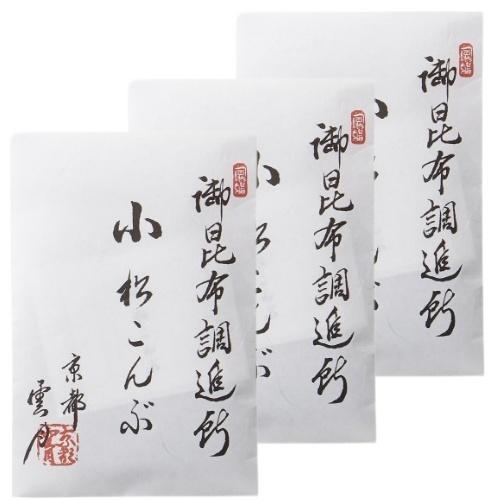 御昆布調進所
小松こんぶ
京都
雲月
御昆布調進所
御昆布調進所